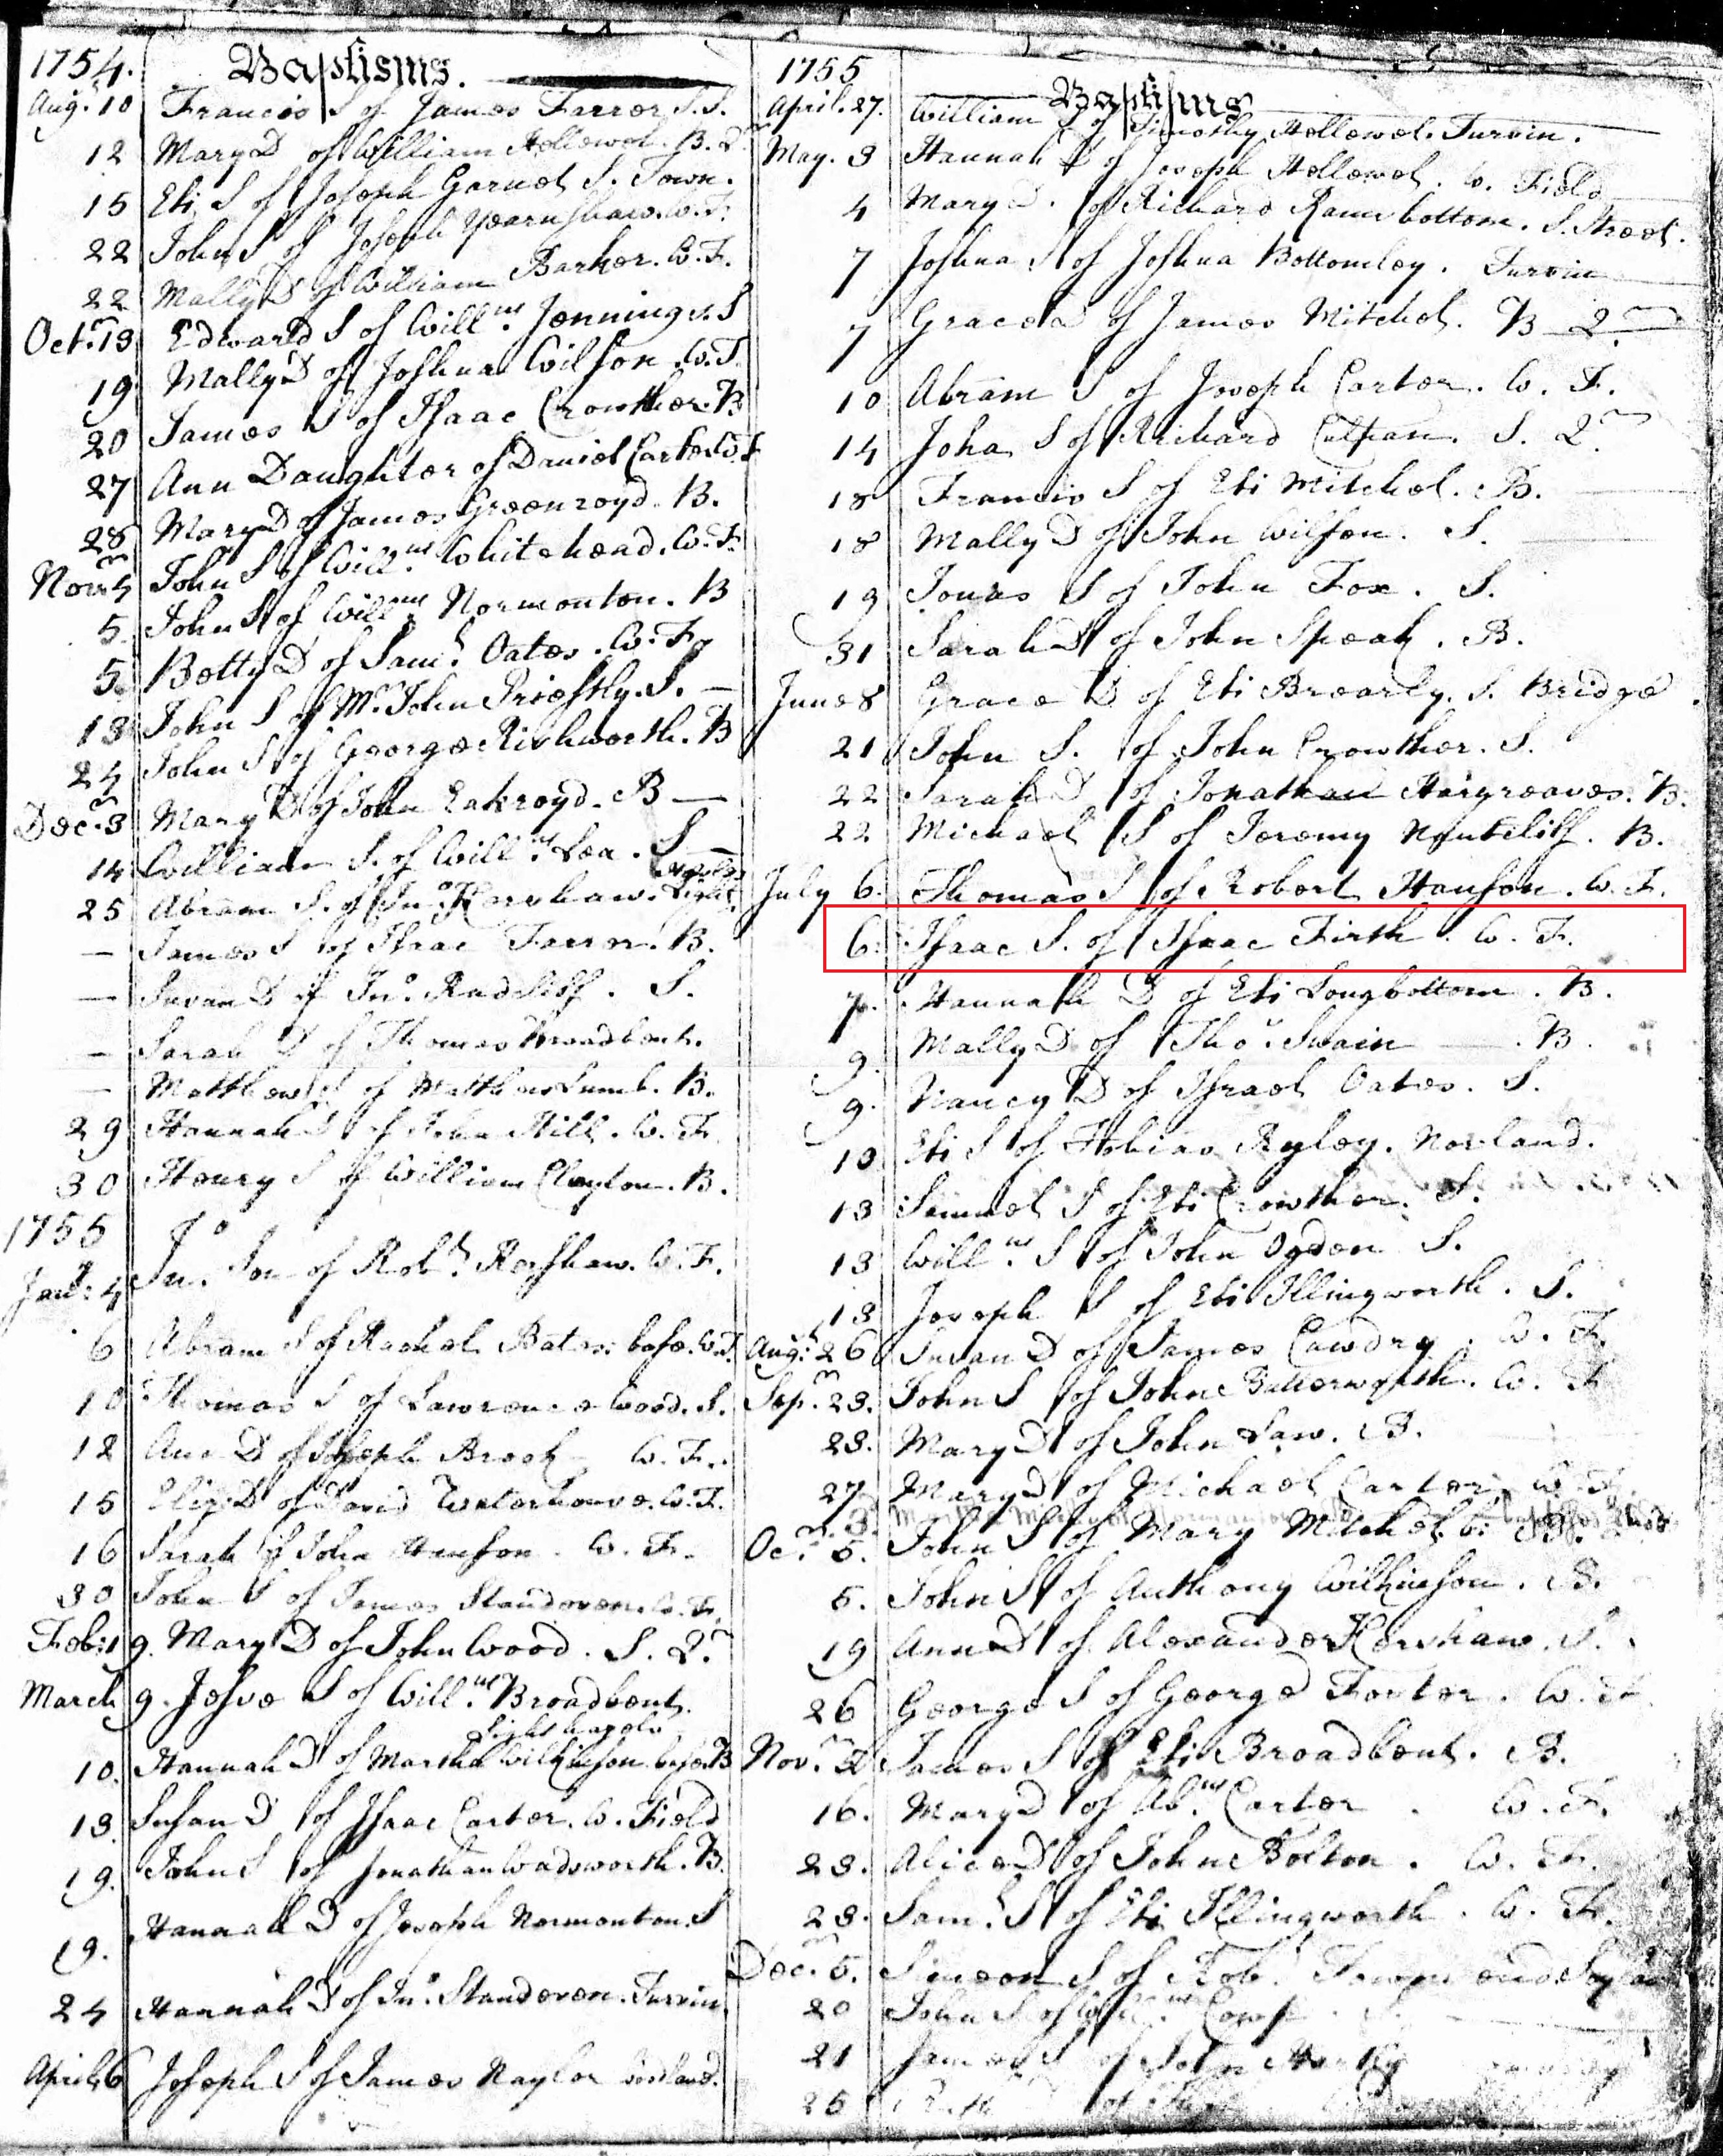 1754. Baptisms.
Aug.t 10 Francis S of James Farrer S.S.
12 Mary D of William Hollewel. B. Q.r
15 Eli S of Joseph Garnet S. Town.
22 John S of Joseph Yearnshaw. W. F.
22 Mally D of William Barker. W. F.
Oct.r 13 Edward S of Will.m Jennings S
19 Mally D of Joshua Wilson W. F.
20 James S of Isaac Crowther. B
27 Ann Daughter of Daniel Carter W. F
28 Mary D of James Greenroyd. B.
Nov.r 4 John S of Will.m Whitehead. W. F.
5. John S of Will.m Normonton. B
5 Betty D of Sam.l Oates. W. F.
13 John S of M.r John Priestly. S.
24 John S of George Rishworth. B
Dec.r 3 Mary D of John Eakroyd. B
14 William S. of Will.m Lea. S
25 Abram S. of Jn.o Kershaw. Light
— James S of Isaac B.
— Susan D of Jn.o Radcliff. S.
— Sarah D of Thomas Broadbent.
— Matthew S of Matthew Lumb. B.
29 Hannah of John Hill. W. F.
30 Henry S of William Clayton. B.
1755
Jan.y 4 Jn.o Son of Rob.t W. F.
6 Abram S of Rachel Bates base. W. F.
10 Thomas S of Lawrence Wood. S.
12 Ann D of Joseph Brook W. F.
15 Eliz. D of David Waterhouse. W. F.
16 Sarah of John Hanson. W. F.
30 John S of James Standeven. W. F.
Feb: 19. Mary D of John Wood. S. Q.r
March 9. Josve S of Will.m Broadbent.
10. Hannah D of Martha Wilkinson base. B
13 Susan D of Isaac Carter. W. Field
19. John S of Jonathan Wadsworth. B.
19. Hannah D of Joseph Normonton. S
24 Hannah D of Jn.o Standeven. Turvin
April 6 Joseph S of James Naylor
1755 Baptisms
April. 27. William S of Timothy Hollewel. Turvin.
May. 3 Hannah D of Joseph Hollewel. W. Field
4 Mary D. of Richard Ramsbottom. S. Street.
7 Joshua S of Joshua Bottomley. Turvin
7 Grace D of James Mitchel. B Q.r
10 Abram S of Joseph Carter. W. F.
14 John S of Richard S. Q.r
18 Francis S of Eli Mitchel. B.
18 Mally D of John Wilson. S.
19 Jonas S of John Fox. S.
31 Sarah D of John Speak. B.
June 8 Grace D of Eli Brearly. S. Bridge
21 John S. of John Crowther. S.
22 Sarah D of Jonathan Hargreaves. B.
22 Michael S of Jeremy Nutcliff. B.
July 6. Thomas S of Robert Hanson. W. F.
6. Isaac S. of Isaac Firth. W. F.
7. Hannah D of Eli Longbottom. B.
9. Mally D of Tho.s Swain B.
9. Nancy D of Israel Oates. S.
10 Eli S of Tobias Ryley. Norland.
13 Samuel S of Eli Crowther. S.
13 Will.m S of John Ogden S.
13 Joseph S of Eli Illingworth. S.
Aug.t 26 Susan D of James Cawdry. W. F.
Sep.r 23. John S of John Butterworth. W. F
23. Mary D of John Law. B.
27 Mary D of Michael Carter. W. F.
3.
Oc.r 5. John S of Mary Mitchel
5. John S of Anthony Wilkinson. B.
19 Ann D of Alexander Kershaw. S.
26 George S of George Foster. W. F.
Nov.r 2 James S of Eli Broadbent. B.
16. Mary D of Ab.m Carter. W. F.
23. Alice D of John Bolton. W. F.
23. Sam.l S of Eli Illingworth. W. F.
Dec.r 5. Simeon S of Rob.t
20 John S of
21 James S of John
25